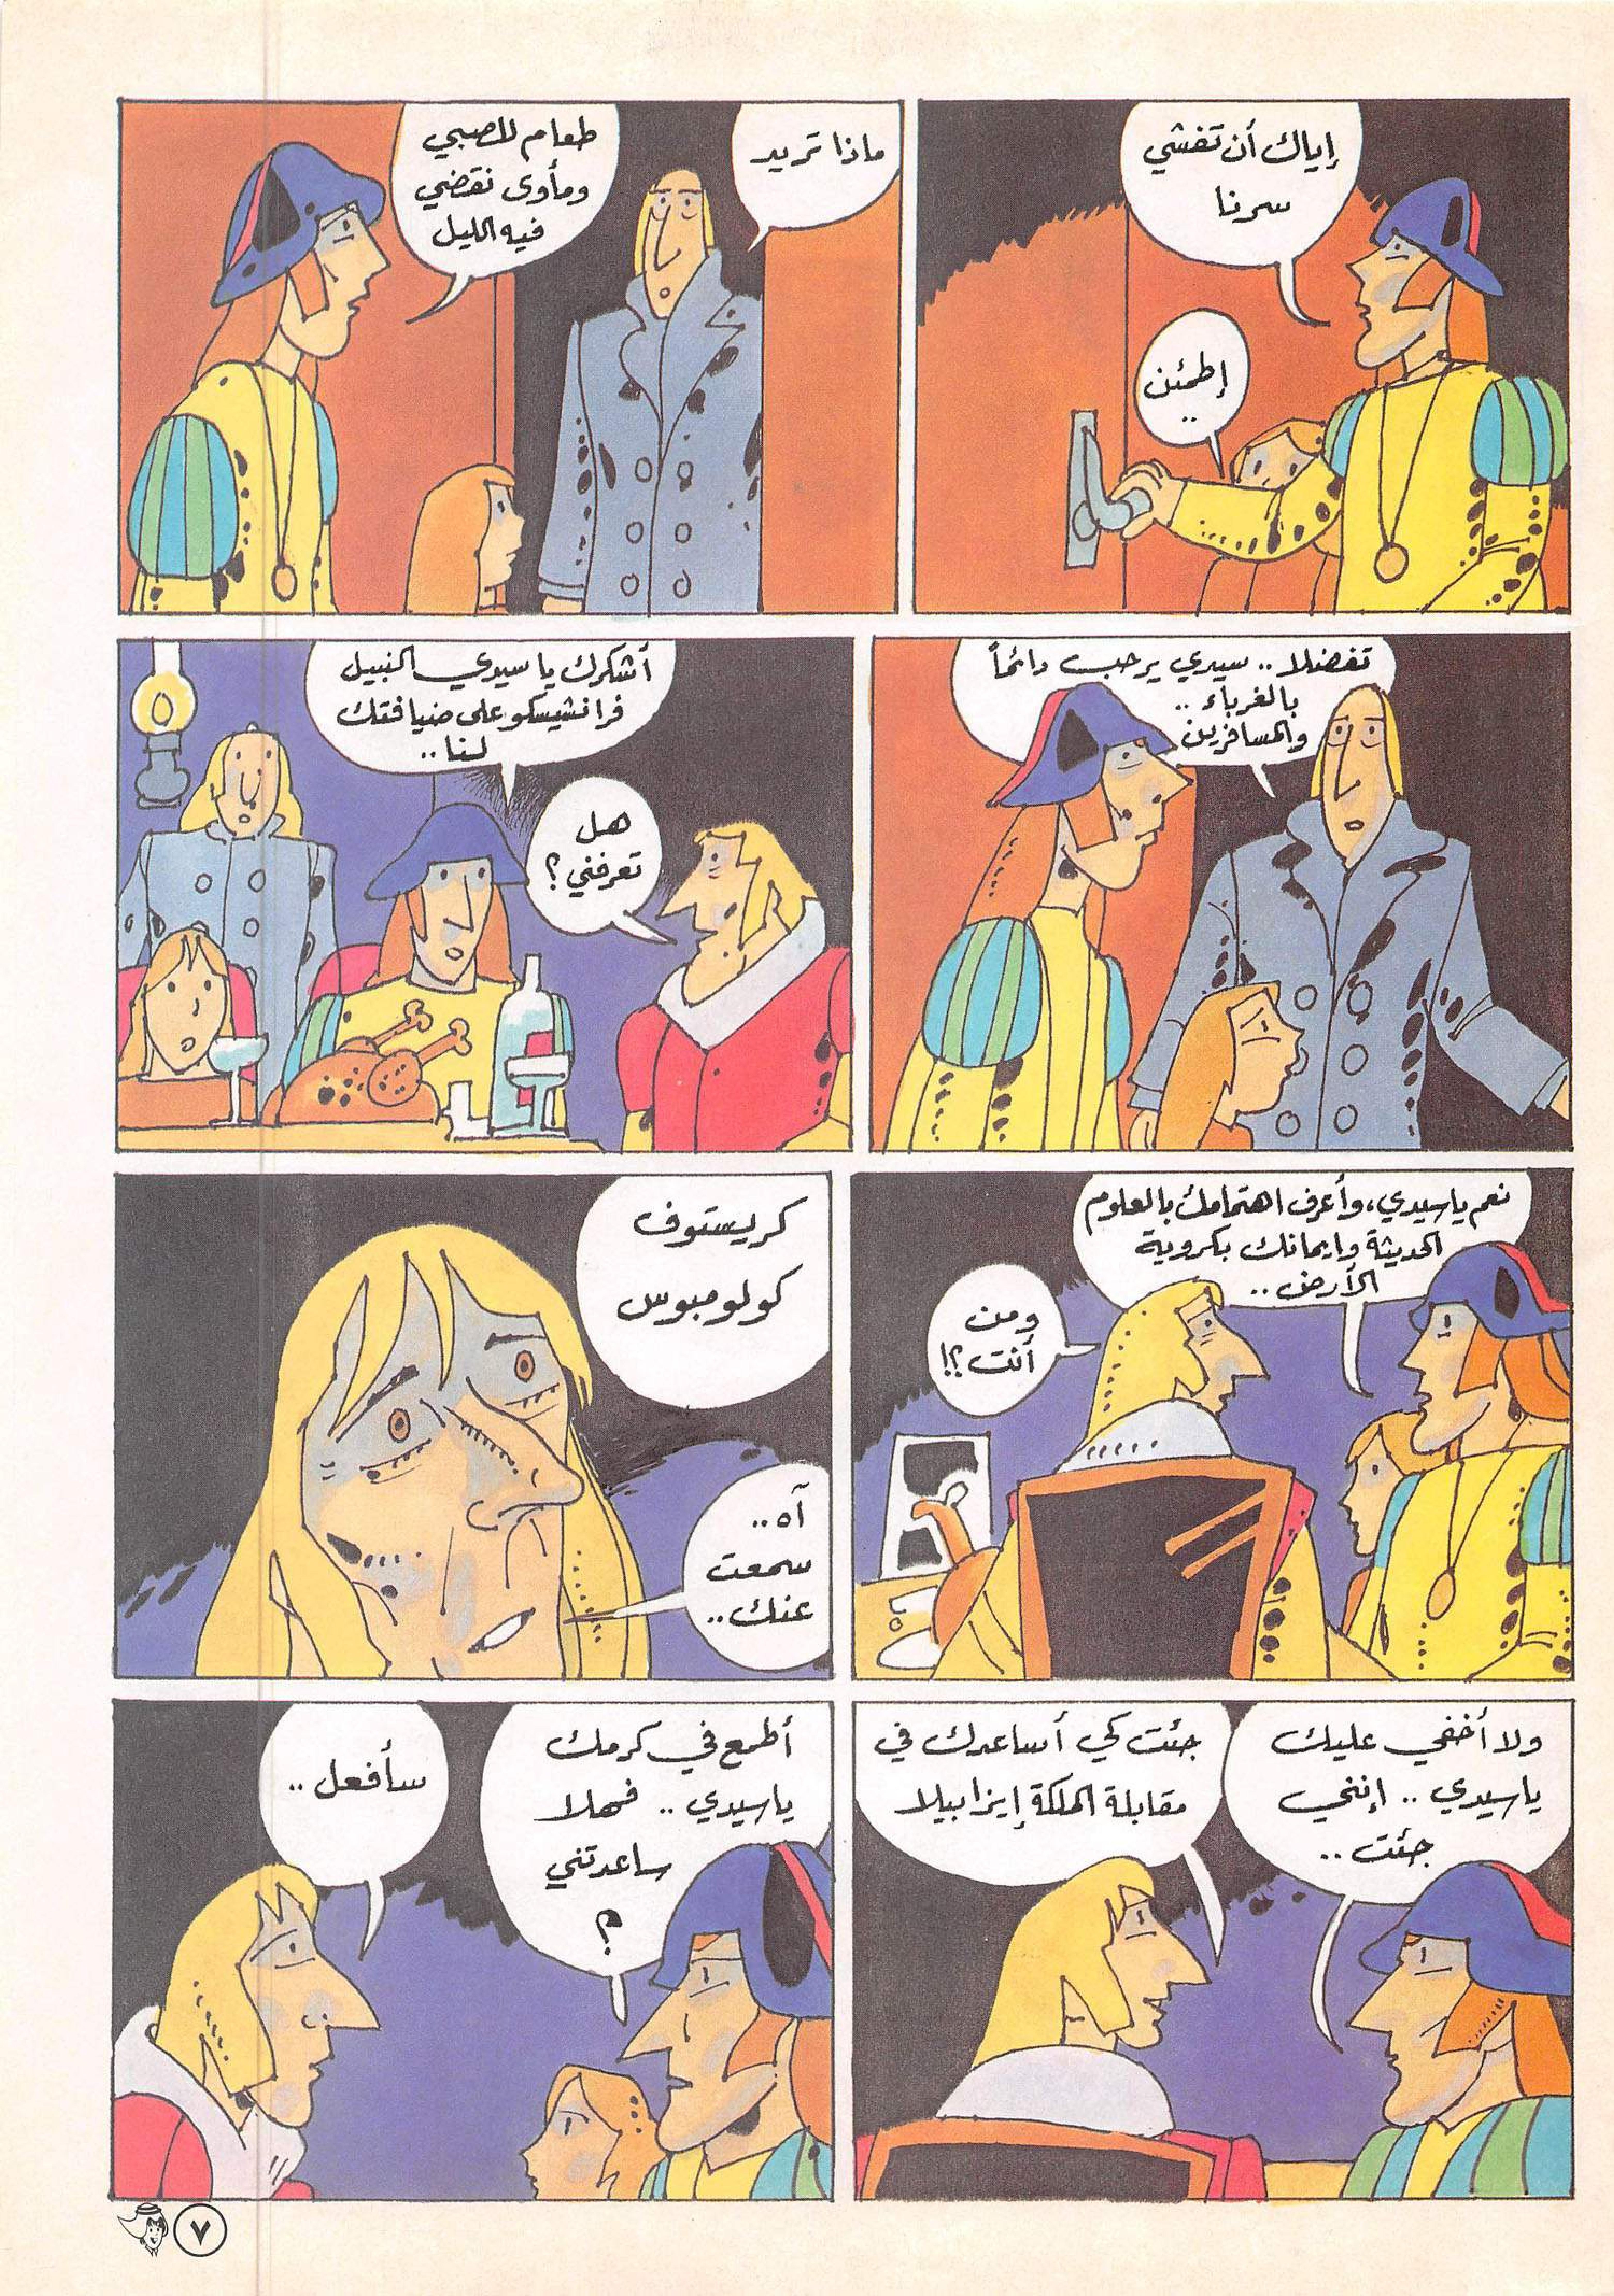 إياك أن تفشي
سرنا
إطمئن
..
ماذا تريد
طعام للصبي
ومأوى نقضي
فيه الليل
تفضلا .. سيدي يرحب دائماً
بالغرباء ..
والمسافرين
أشكرك يا سيدي النبيل
فرانشيسكو على ضيافتك
لنا ..
هل
تعرفني؟
نعم يا سيدي، وأعرف اهتمامك بالعلوم
الحديثة وايمانك بكروية
الأرض ..
ومن
أنت؟!
كريستوف
كولومبوس
آه ..
سمعت
عنك ..
ولا أخفي عليك
يا سيدي .. إنني
جئت ..
جئت كي أساعدك في
مقابلة الملكة إيزابيلا
أطمع في كرمك
يا سيدي .. فهلا
ساعدتني
؟
سأفعل ..
٧